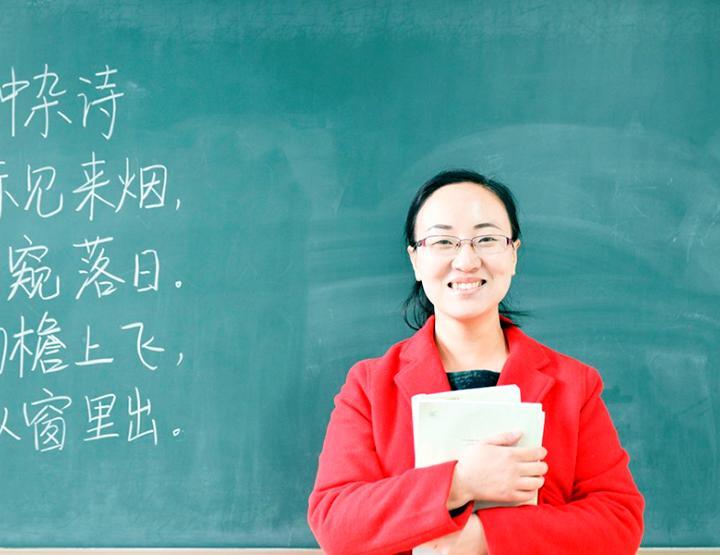 中杂诗
见来烟,
窥落日。
檐上飞,
从窗里出。